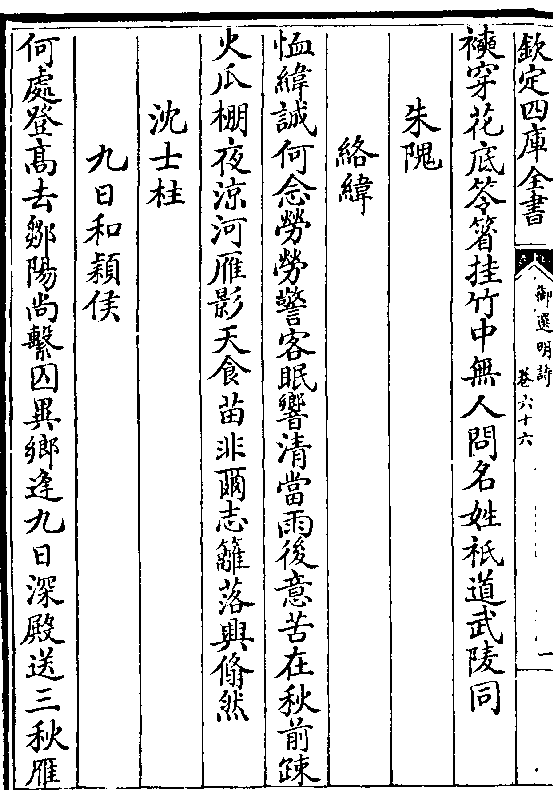 欽定四庫全書
御選明詩
卷六十六
襖穿花底笭箵挂竹中無人問名姓祇道武陵同
朱隗
絡緯
恤緯誠何念勞勞警客眠響清當雨後意苦在秋前疎
火瓜棚夜涼河雁影天食苗非爾志籬落興翛然
沈士柱
九日和穎侯
何處登髙去鄒陽尚繫囚異鄉逢九日深殿送三秋雁